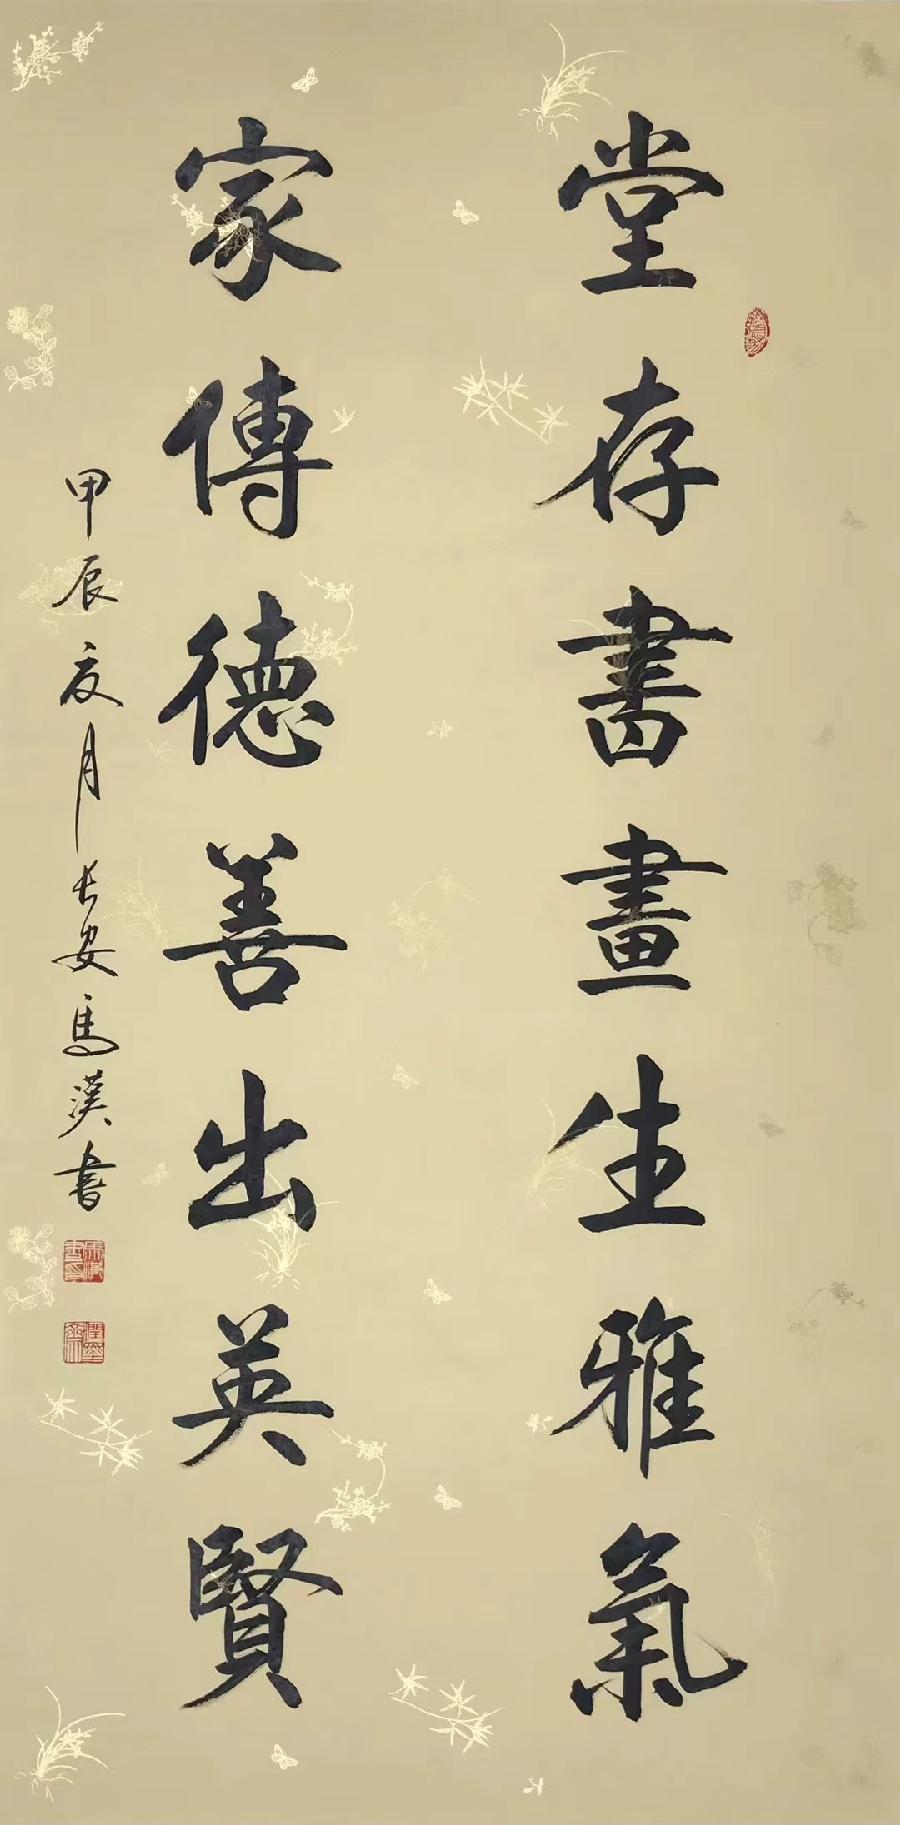 堂存書畫生雅氣
家傳德善出英賢
甲辰夏月長安馬漢書